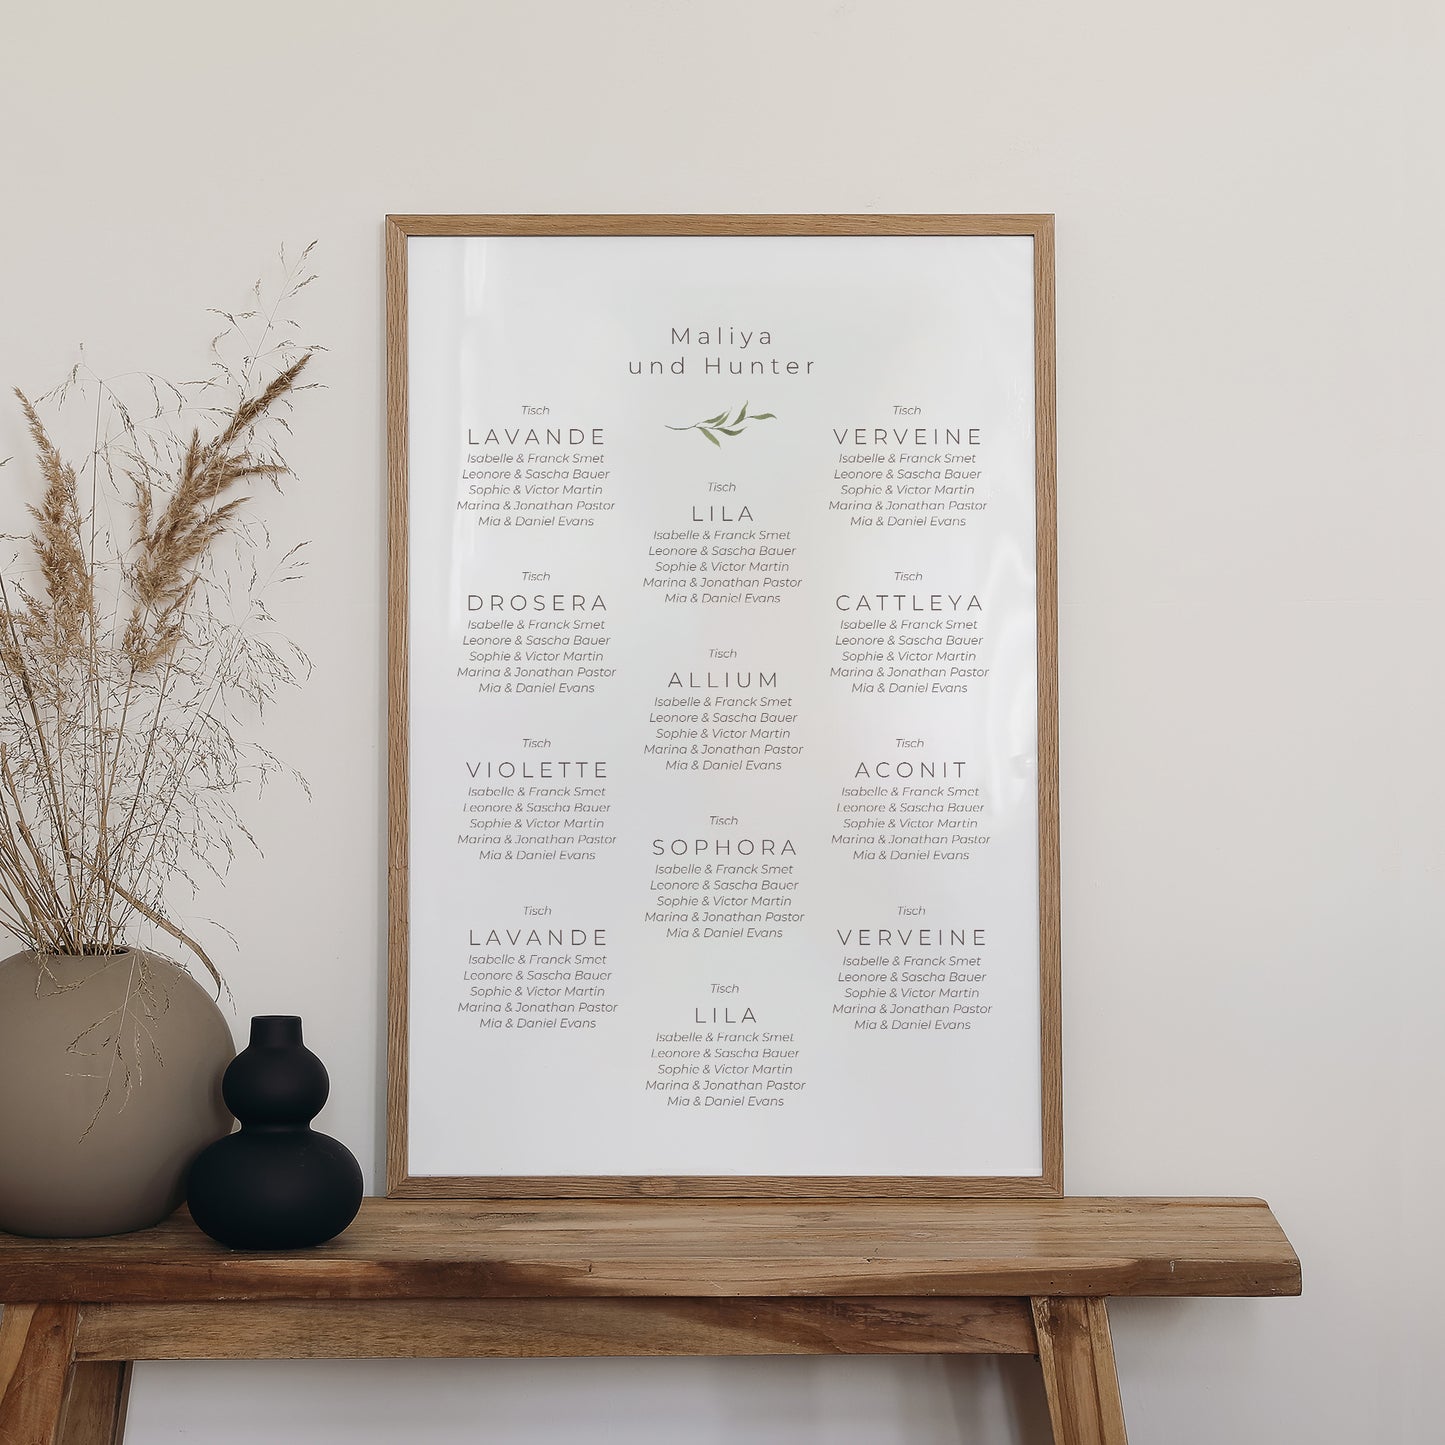 Maliya
und Hunter
Tisch
LAVANDE
Isabelle & Franck Smet
Leonore & Sascha Bauer
Sophie & Victor Martin
Marina & Jonathan Pastor
Mia & Daniel Evans
Tisch
DROSERA
Isabelle & Franck Smet
Leonore & Sascha Bauer
Sophie & Victor Martin
Marina & Jonathan Pastor
Mia & Daniel Evans
Tisch
VIOLETTE
Isabelle & Franck Smet
Leonore & Sascha Bauer
Sophie & Victor Martin
Marina & Jonathan Pastor
Mia & Daniel Evans
Tisch
LAVANDE
Isabelle & Franck Smet
Leonore & Sascha Bauer
Sophie & Victor Martin
Marina & Jonathan Pastor
Mia & Daniel Evans
Tisch
LILA
Isabelle & Franck Smet
Leonore & Sascha Bauer
Sophie & Victor Martin
Marina & Jonathan Pastor
Mia & Daniel Evans
Tisch
ALLIUM
Isabelle & Franck Smet
Leonore & Sascha Bauer
Sophie & Victor Martin
Marina & Jonathan Pastor
Mia & Daniel Evans
Tisch
SOPHORA
Isabelle & Franck Smet
Leonore & Sascha Bauer
Sophie & Victor Martin
Marina & Jonathan Pastor
Mia & Daniel Evans
Tisch
LILA
Isabelle & Franck Smet
Leonore & Sascha Bauer
Sophie & Victor Martin
Marina & Jonathan Pastor
Mia & Daniel Evans
Tisch
VERVEINE
Isabelle & Franck Smet
Leonore & Sascha Bauer
Sophie & Victor Martin
Marina & Jonathan Pastor
Mia & Daniel Evans
Tisch
CATTLEYA
Isabelle & Franck Smet
Leonore & Sascha Bauer
Sophie & Victor Martin
Marina & Jonathan Pastor
Mia & Daniel Evans
Tisch
ACONIT
Isabelle & Franck Smet
Leonore & Sascha Bauer
Sophie & Victor Martin
Marina & Jonathan Pastor
Mia & Daniel Evans
Tisch
VERVEINE
Isabelle & Franck Smet
Leonore & Sascha Bauer
Sophie & Victor Martin
Marina & Jonathan Pastor
Mia & Daniel Evans